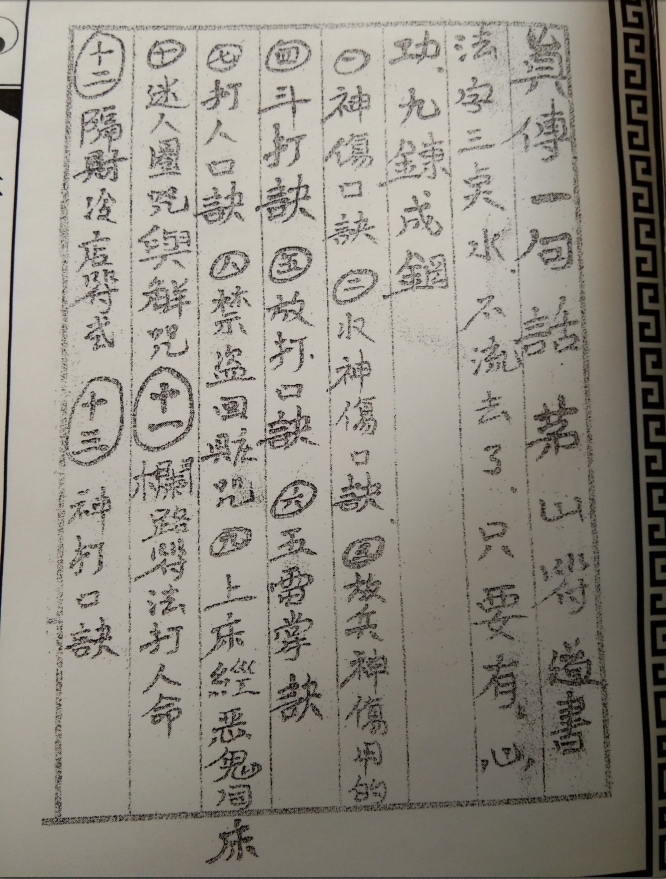 真傳一句話 茅山符道書
法字三点水.不流去了.只要有心,
功、九錬成鋼
㊀神傷口訣㊁收神傷口訣㊂放兵神傷用的
㊃斗打訣㊄放打口訣㊅五雷掌訣
㊆打人口訣㊇禁盜回賍咒㊃上床經惡鬼同床
㊉迷人圈咒與解咒(十一)欄路符法打人命
(十二)隔財冷店符式(十三)神打口訣